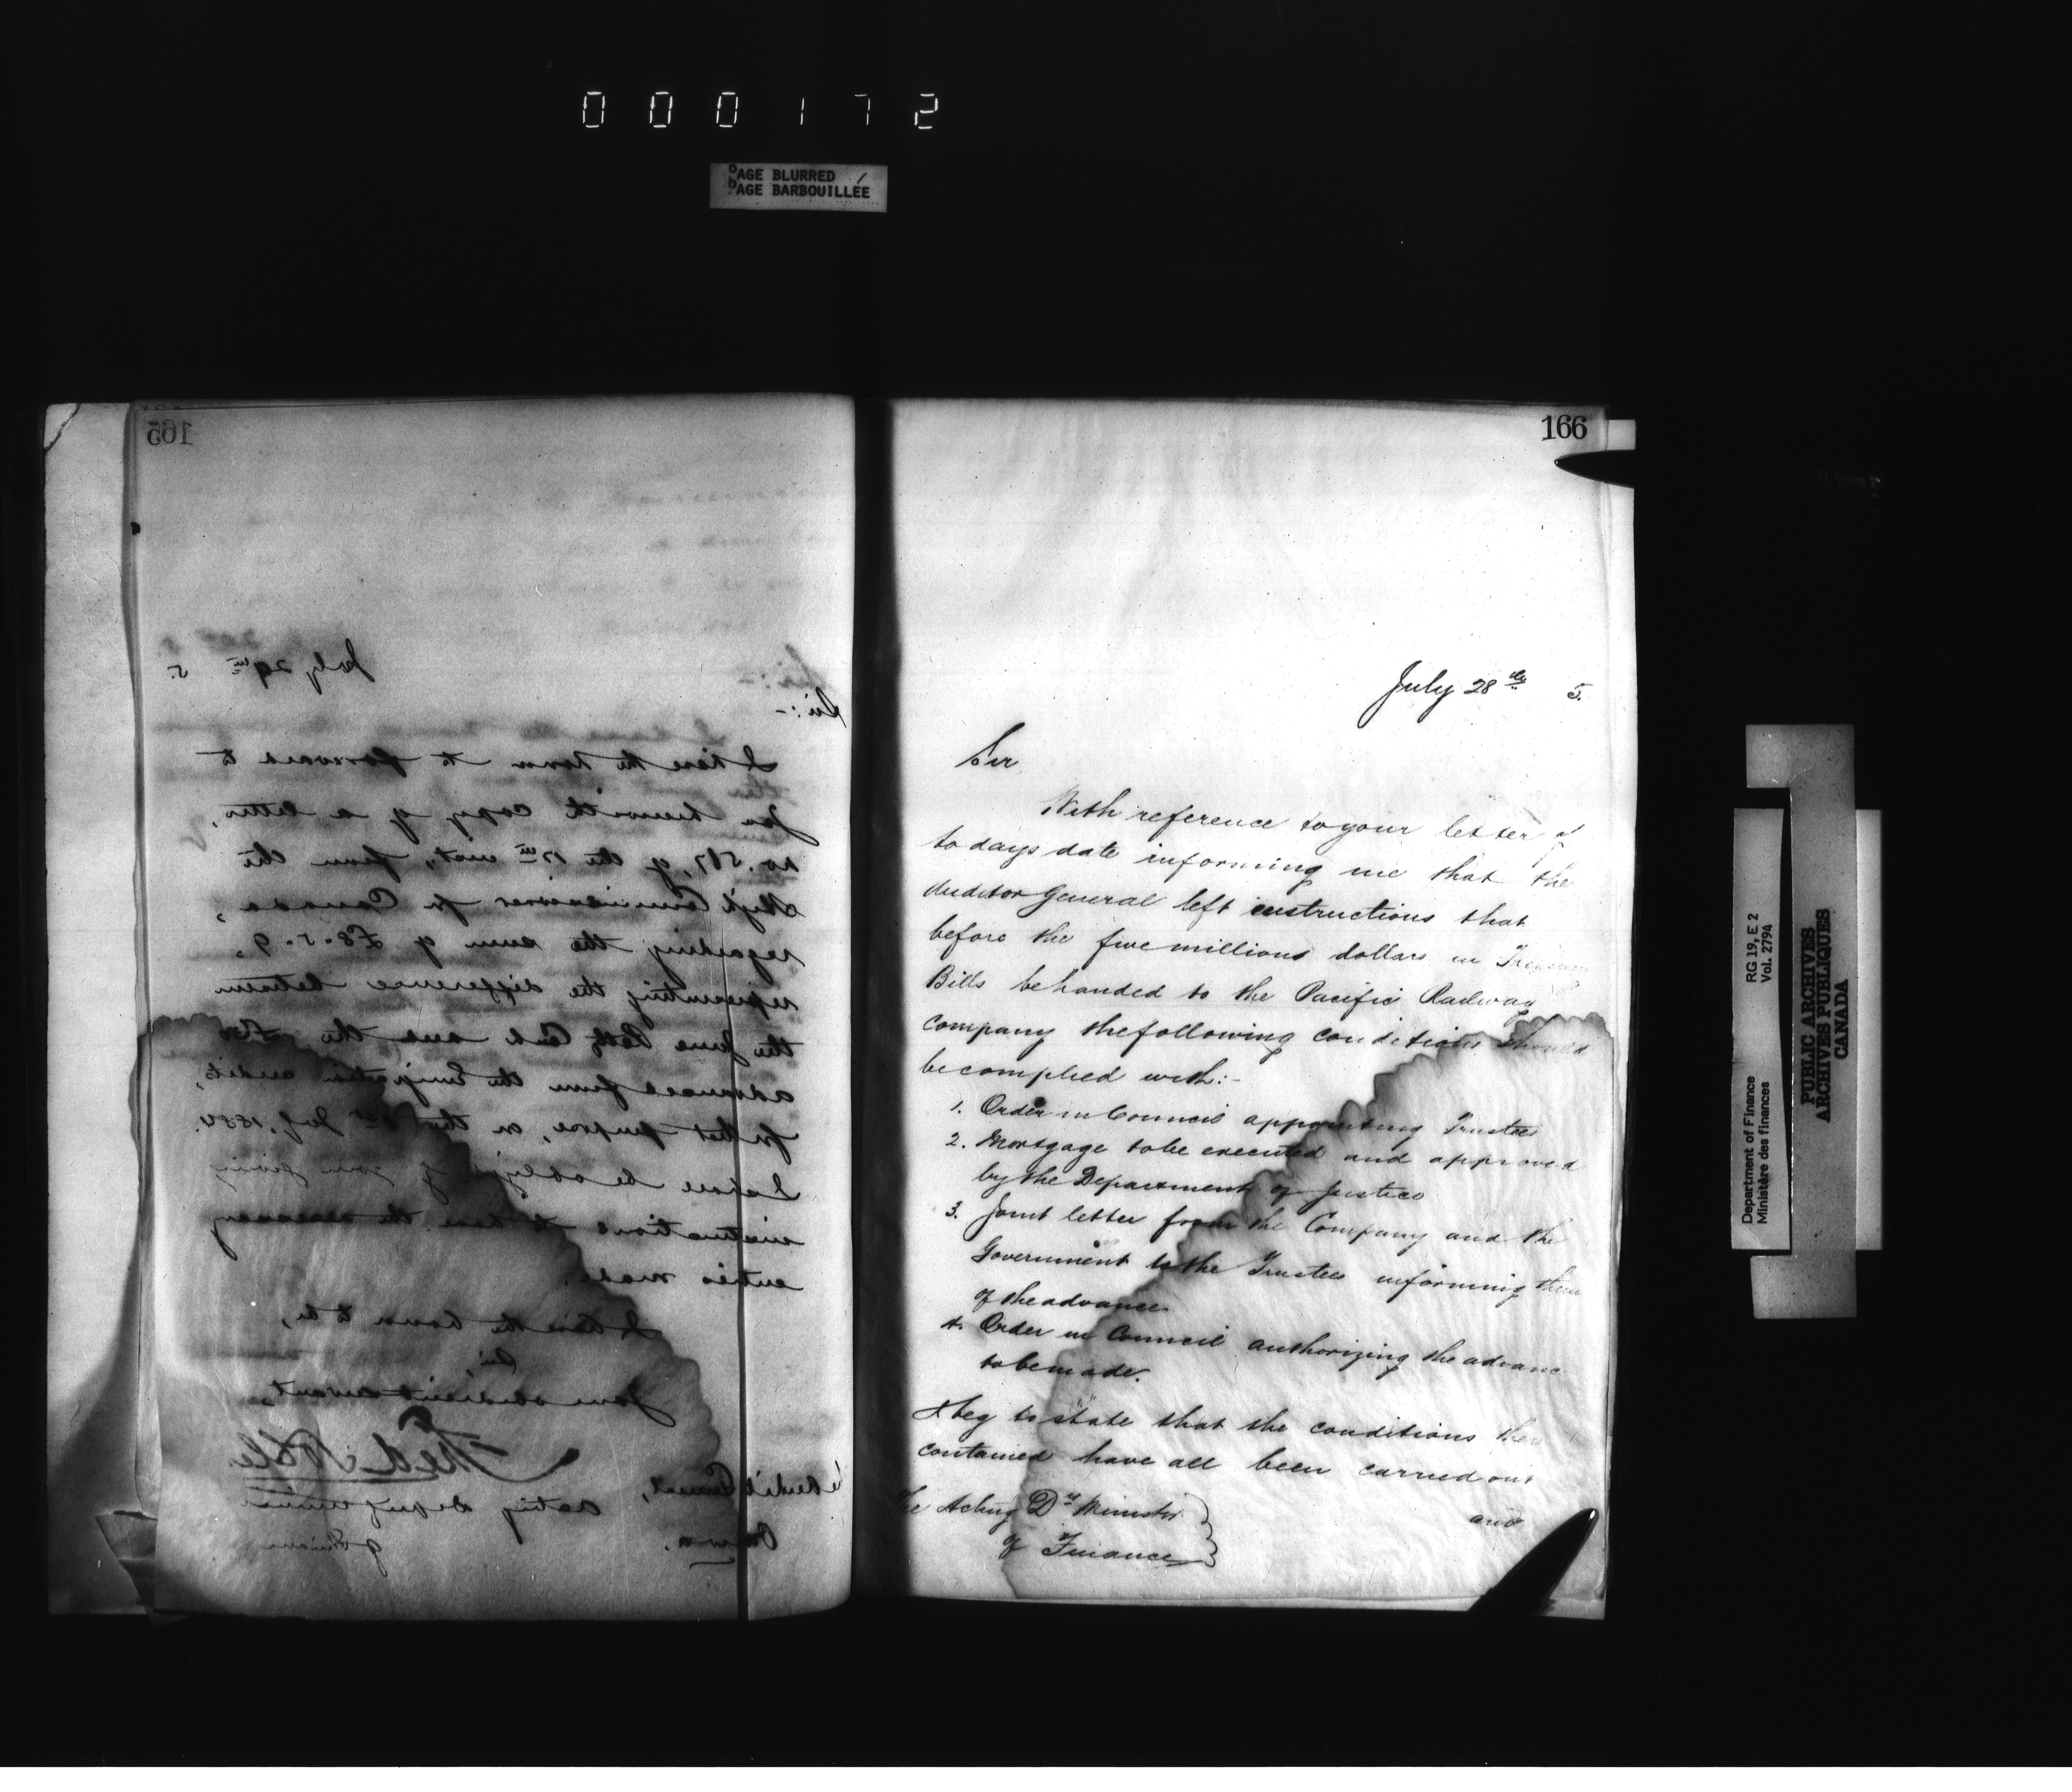 000172
PAGE BLURRED
PAGE BARBOUILLÉE
165
July 29th 5.
Sir:-
I have the honor to forward to
you herewith copy of a letter,
no. 517, of the 17th inst, from the
High Commissioner for Canada,
regarding the sum of £8.5.9,
representing the difference between
the June Petty Cash and the
advanced from the Emigration credit,
for that purpose, on the July, 1884.
I shall be obliged by your giving
instructions to have the necessary
entries made.
I have the honor to be,
Sir,
Your obedient servant,
Acting Deputy Minister
of Finance
Auditor General,
Ottawa.
166
July 28th 5.
Sir
With reference to your letter of
to days date informing me that the
Auditor General left instructions that
before the five millions dollars in Treasury
Bills be handed to the Pacific Railway
Company the following conditions should
be complied with:-
1. Order in Council appointing Trustees
2. Mortgage to be executed and approved
by the Department of Justice
3. Joint letter from the Company and the
Government to the Trustees informing them
of the advance
4. Order in Council authorizing the advance
to be made.
I beg to state that the conditions
contained have all been carried out
and
The Acting Dy Minister
of Finance
Department of Finance RG 19, E 2
Ministère des finances Vol. 2794
PUBLIC ARCHIVES
ARCHIVES PUBLIQUES
CANADA